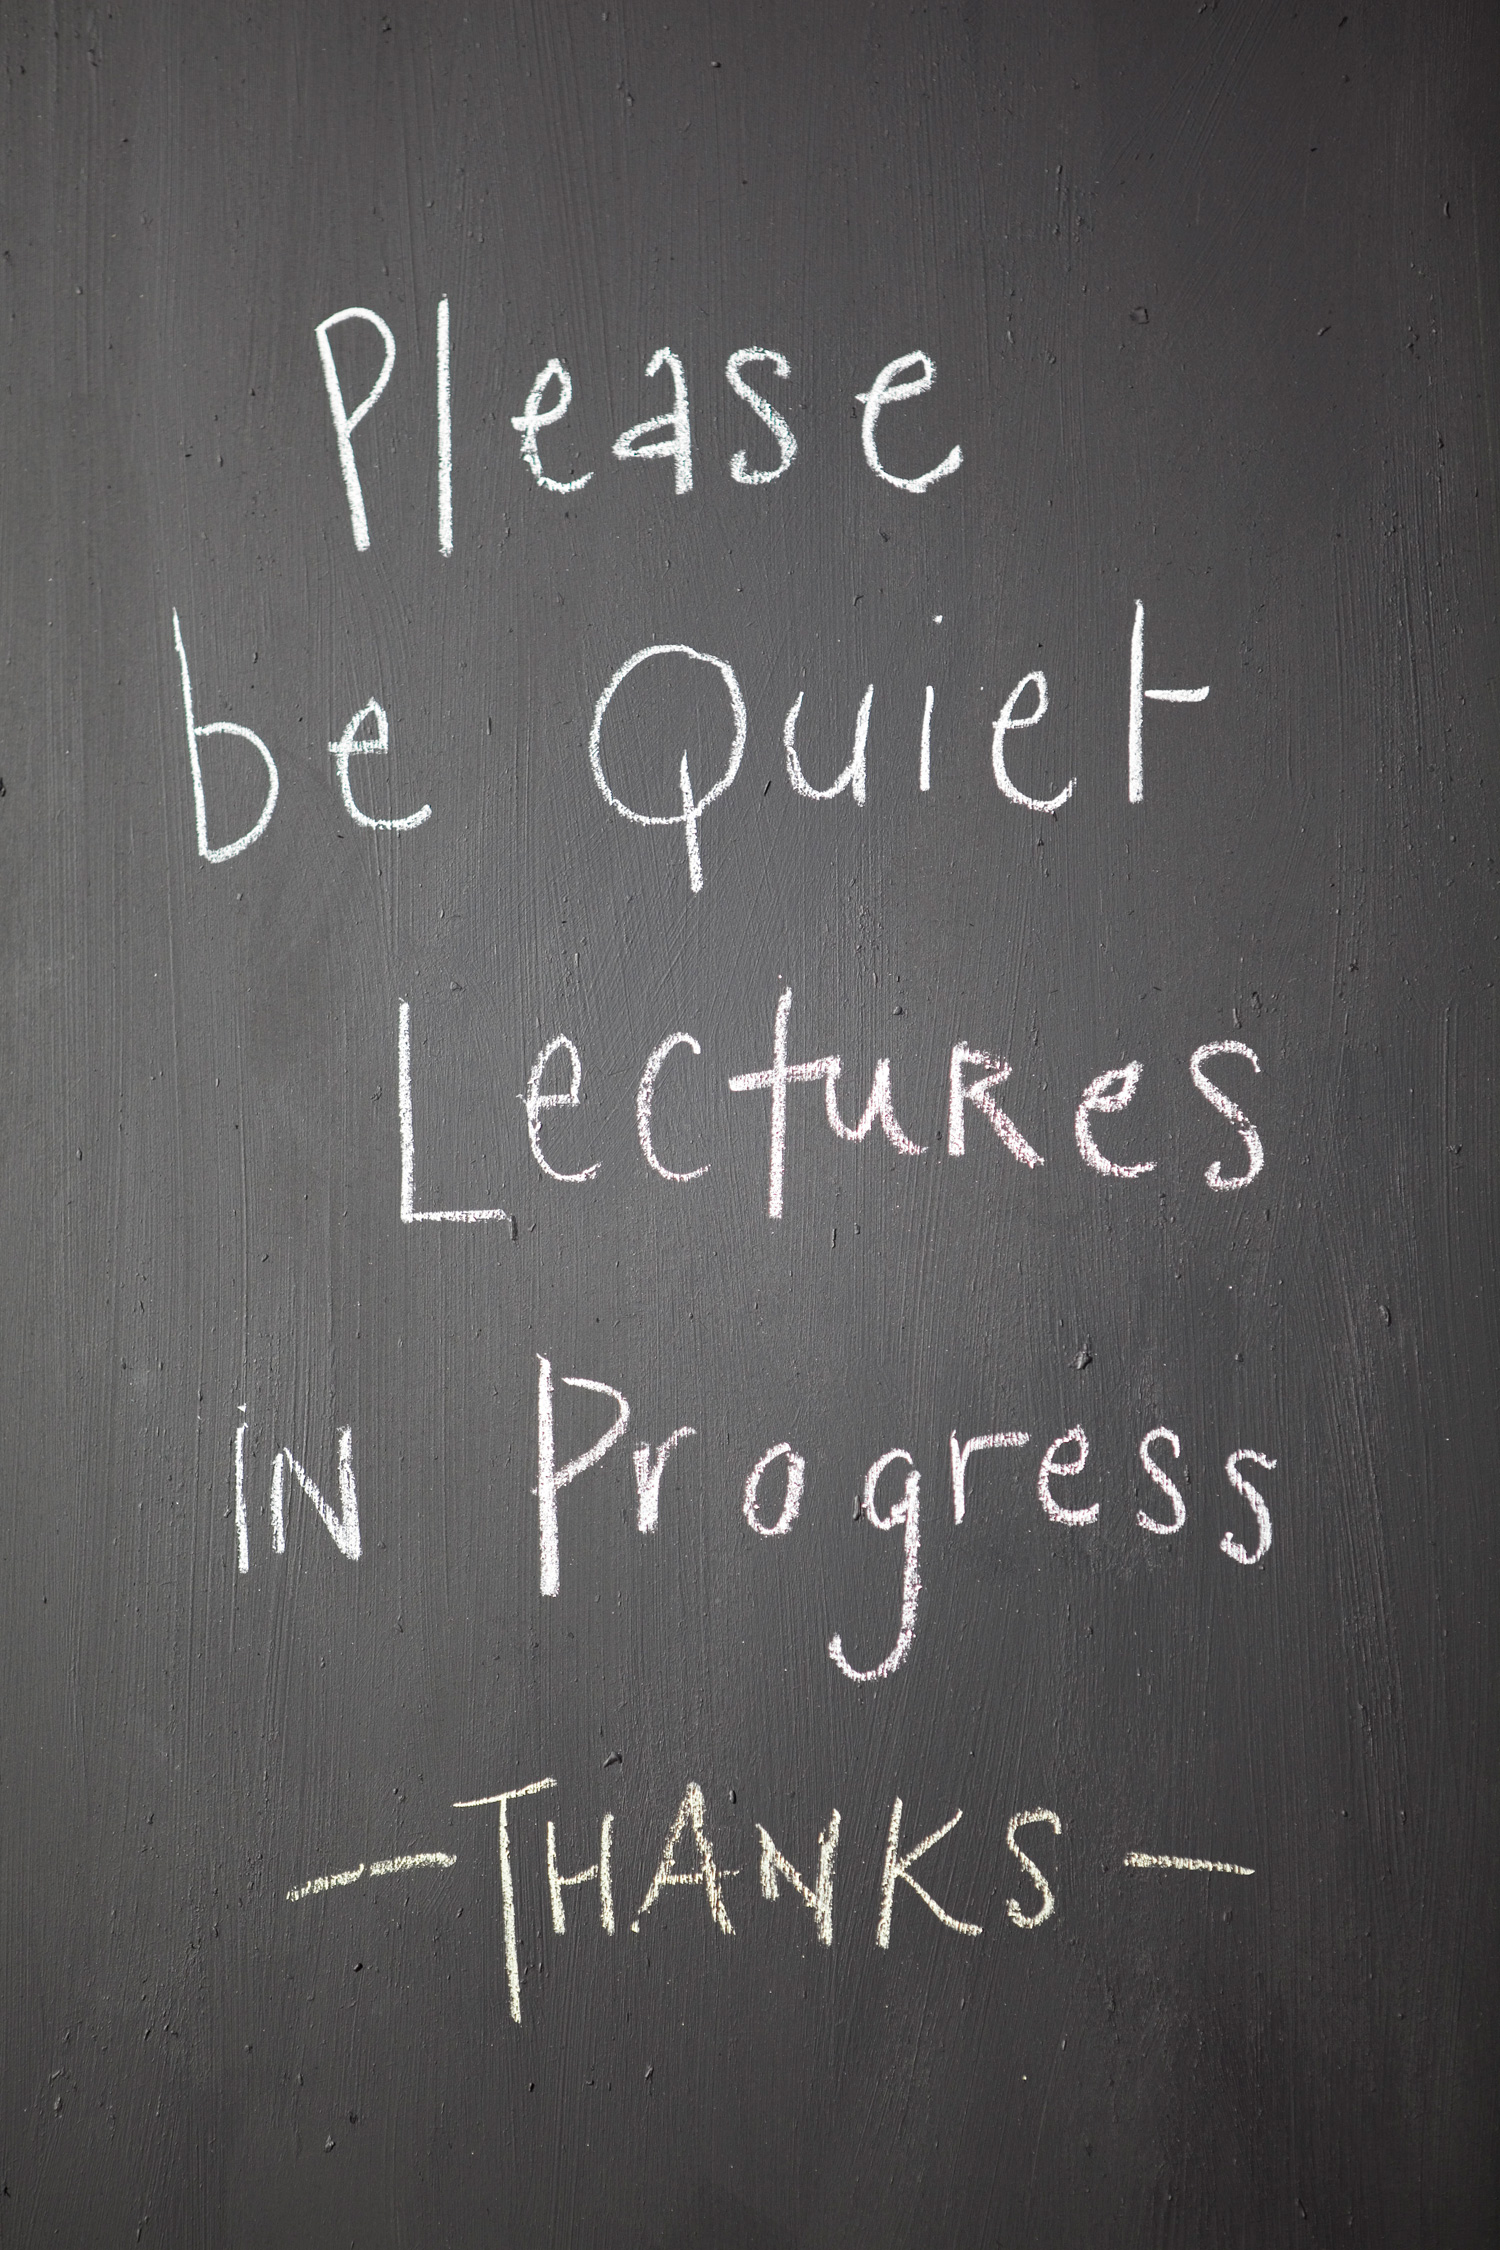 Please
be Quiet
Lectures
in Progress
- THANKS -